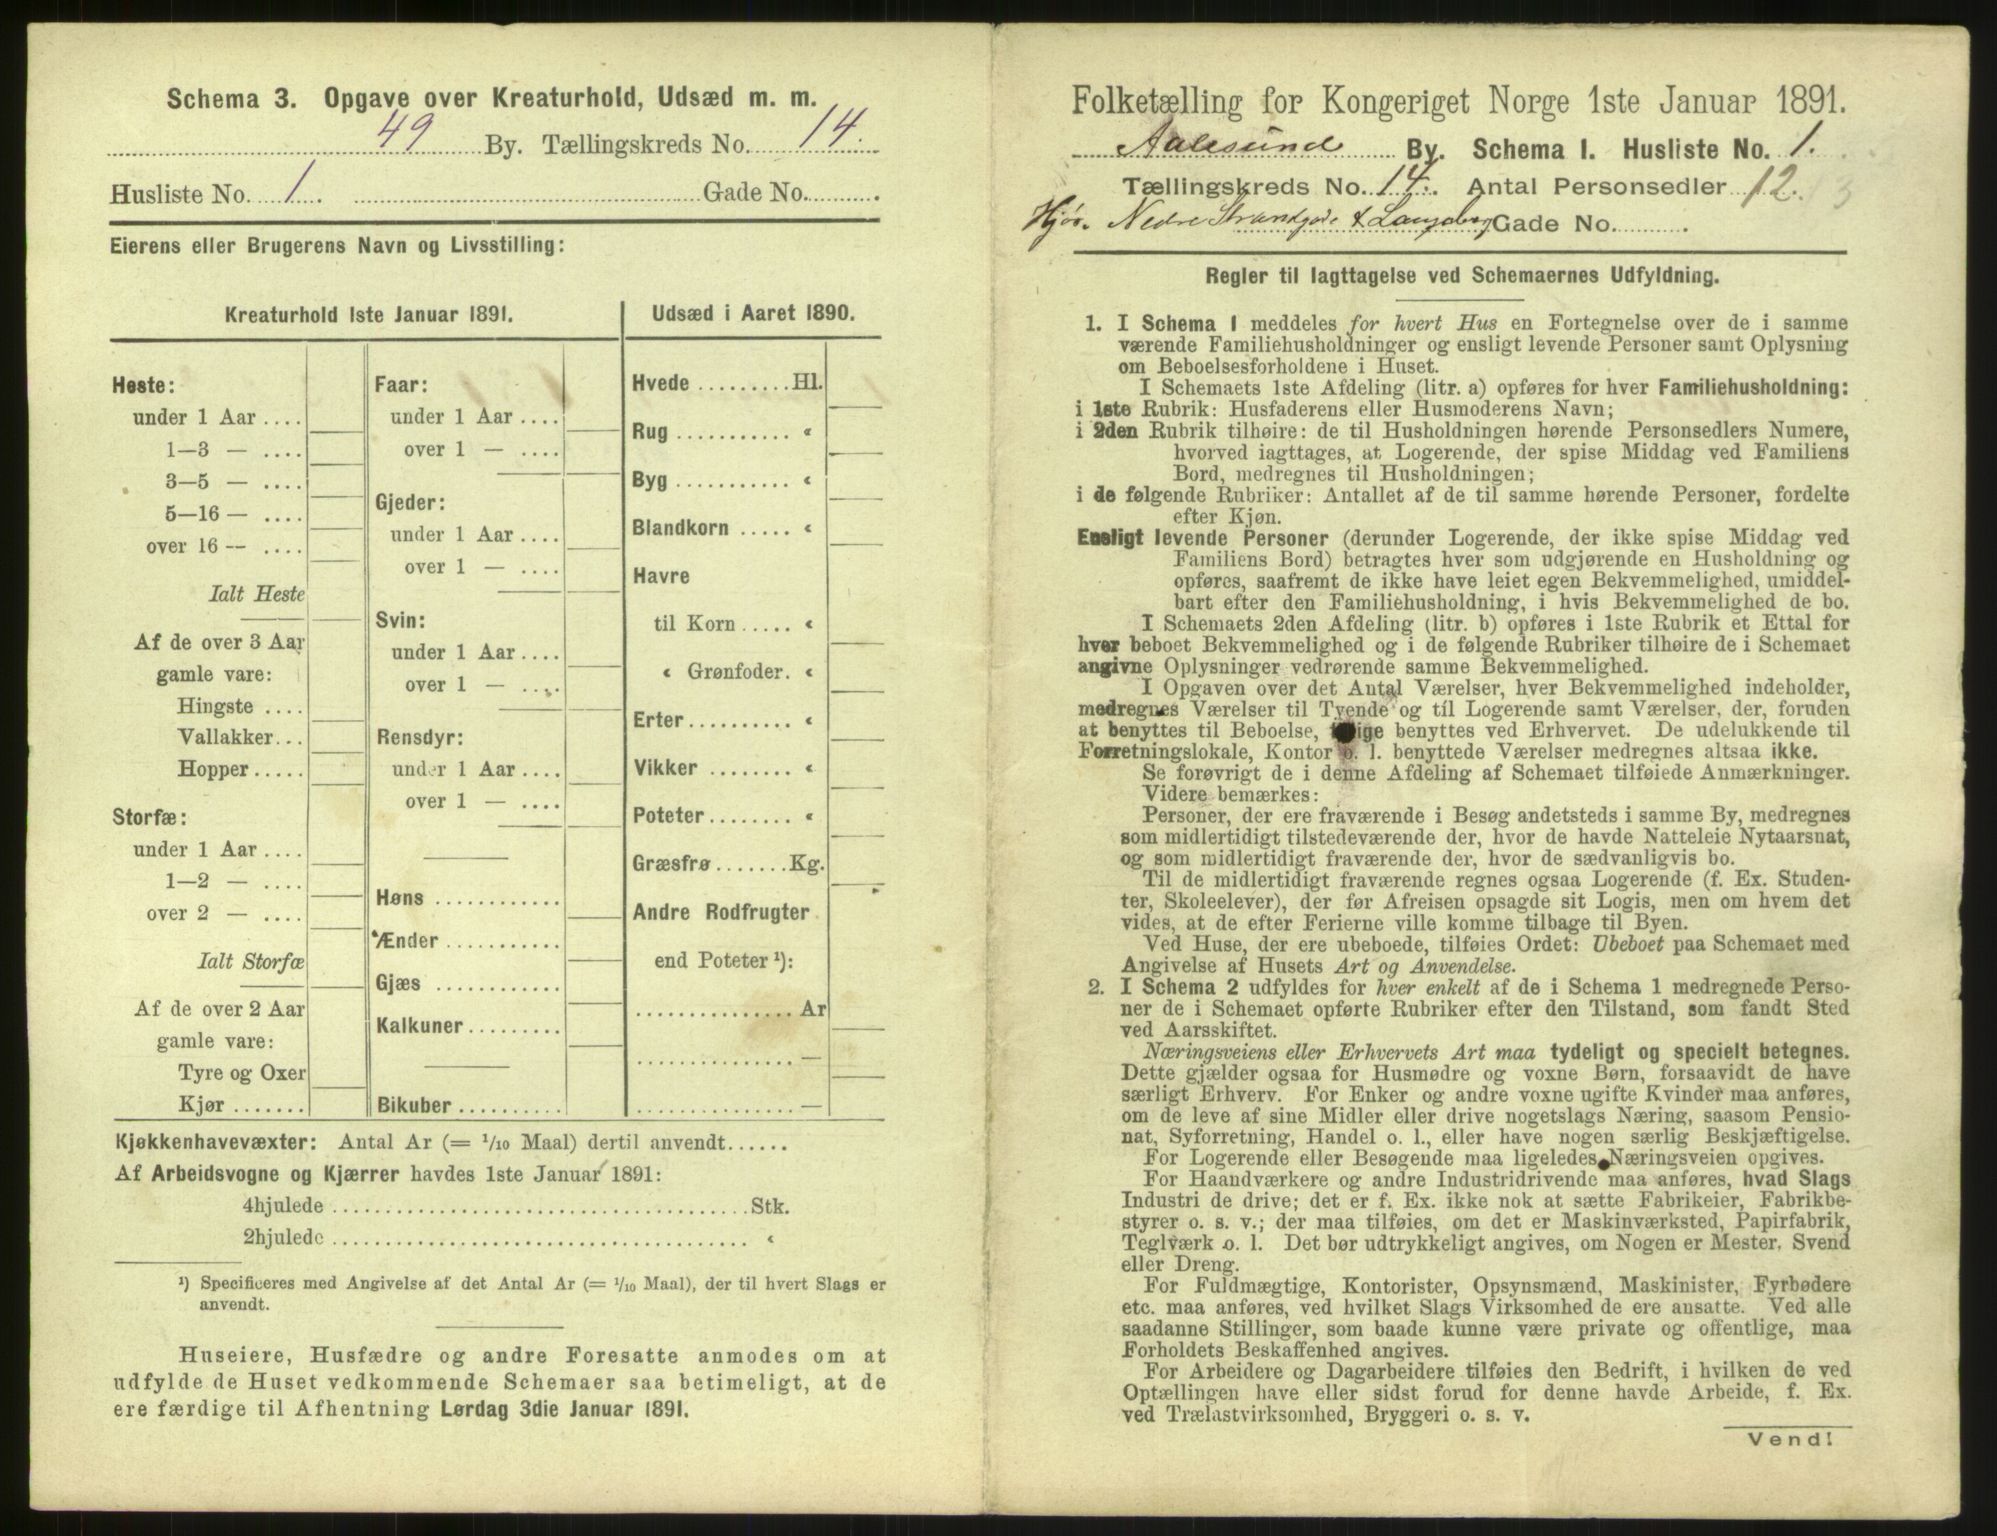 Schema 3. Opgave over Kreaturhold, Udsæd m. m.
49 By. Tællingskreds No. 14.
Husliste No. 1. Gade No.
Eierens eller Brugerens Navn og Livsstilling:
Kreaturhold 1ste Januar 1891.
Heste:
under 1 Aar ....
1—3 — ....
3—5 — ....
5—16 — ....
over 16 — ....
Ialt Heste
Af de over 3 Aar
gamle vare:
Hingste ....
Vallakker...
Hopper.....
Storfæ:
under 1 Aar ....
1—2 — ....
over 2 — ....
Ialt Storfæ
Af de over 2 Aar
gamle vare:
Tyre og Oxer
Kjør .......
Faar:
under 1 Aar ....
over 1 — ....
Gjeder:
under 1 Aar ....
over 1 — ....
Svin:
under 1 Aar ....
over 1 — ....
Rensdyr:
under 1 Aar ....
over 1 — ....
Høns ............
Ænder ...........
Gjæs ............
Kalkuner.........
Bikuber..........
Udsæd i Aaret 1890.
Hvede .........Hl.
Rug ........... «
Byg ........... «
Blandkorn ..... «
Havre
til Korn ..... «
« Grønfoder. «
Erter.......... «
Vikker ........ «
Poteter........ «
Græsfrø .......Kg.
Andre Rodfrugter
end Poteter ¹):
............... Ar
............... —
............... —
Kjøkkenhavevæxter: Antal Ar (= 1/10 Maal) dertil anvendt......
Af Arbeidsvogne og Kjærrer havdes 1ste Januar 1891:
4hjulede ....................................... Stk.
2hjulede ....................................... «
¹) Specificeres med Angivelse af det Antal Ar (= 1/10 Maal), der til hvert Slags er
anvendt.
Huseiere, Husfædre og andre Foresatte anmodes om at
udfylde de Huset vedkommende Schemaer saa betimeligt, at de
ere færdige til Afhentning Lørdag 3die Januar 1891.
Folketælling for Kongeriget Norge 1ste Januar 1891.
Aalesund By. Schema I. Husliste No. 1.
Tællingskreds No. 14. Antal Personsedler 12. 13
Hjør. Nedre Strandgade & Gade No.
Regler til Iagttagelse ved Schemaernes Udfyldning.
1. I Schema 1 meddeles for hvert Hus en Fortegnelse over de i samme
værende Familiehusholdninger og ensligt levende Personer samt Oplysning
om Beboelsesforholdene i Huset.
I Schemaets 1ste Afdeling (litr. a) opføres for hver Familiehusholdning:
i 1ste Rubrik: Husfaderens eller Husmoderens Navn;
i 2den Rubrik tilhøire: de til Husholdningen hørende Personsedlers Numere,
hvorved iagttages, at Logerende, der spise Middag ved Familiens
Bord, medregnes til Husholdningen;
i de følgende Rubriker: Antallet af de til samme hørende Personer, fordelte
efter Kjøn.
Ensligt levende Personer (derunder Logerende, der ikke spise Middag ved
Familiens Bord) betragtes hver som udgjørende en Husholdning og
opføres, saafremt de ikke have leiet egen Bekvemmelighed, umiddel-
bart efter den Familiehusholdning, i hvis Bekvemmelighed de bo.
I Schemaets 2den Afdeling (litr. b) opføres i 1ste Rubrik et Ettal for
hver beboet Bekvemmelighed og i de følgende Rubriker tilhøire de i Schemaet
angivne Oplysninger vedrørende samme Bekvemmelighed.
I Opgaven over det Antal Værelser, hver Bekvemmelighed indeholder,
medregnes Værelser til Tyende og til Logerende samt Værelser, der, foruden
at benyttes til Beboelse, tillige benyttes ved Erhvervet. De udelukkende til
Forretningslokale, Kontor o. l. benyttede Værelser medregnes altsaa ikke.
Se forøvrigt de i denne Afdeling af Schemaet tilføiede Anmærkninger.
Videre bemærkes:
Personer, der ere fraværende i Besøg andetsteds i samme By, medregnes
som midlertidigt tilstedeværende der, hvor de havde Natteleie Nytaarsnat,
og som midlertidigt fraværende der, hvor de sædvanligvis bo.
Til de midlertidigt fraværende regnes ogsaa Logerende (f. Ex. Studen-
ter, Skoleelever), der før Afreisen opsagde sit Logis, men om hvem det
vides, at de efter Ferierne ville komme tilbage til Byen.
Ved Huse, der ere ubeboede, tilføies Ordet: Ubeboet paa Schemaet med
Angivelse af Husets Art og Anvendelse.
2. I Schema 2 udfyldes for hver enkelt af de i Schema 1 medregnede Perso-
ner de i Schemaet opførte Rubriker efter den Tilstand, som fandt Sted
ved Aarsskiftet.
Næringsveiens eller Erhvervets Art maa tydeligt og specielt betegnes.
Dette gjælder ogsaa for Husmødre og voxne Børn, forsaavidt de have
særligt Erhverv. For Enker og andre voxne ugifte Kvinder maa anføres,
om de leve af sine Midler eller drive nogetslags Næring, saasom Pensio-
nat, Syforretning, Handel o. l., eller have nogen særlig Beskjæftigelse.
For Logerende eller Besøgende maa ligeledes Næringsveien opgives.
For Haandværkere og andre Industridrivende maa anføres, hvad Slags
Industri de drive; det er f. Ex. ikke nok at sætte Fabrikeier, Fabrikbe-
styrer o. s. v.; der maa tilføies, om det er Maskinværksted, Papirfabrik,
Teglværk o. l. Det bør udtrykkeligt angives, om Nogen er Mester, Svend
eller Dreng.
For Fuldmægtige, Kontorister, Opsynsmænd, Maskinister, Fyrbødere
etc. maa anføres, ved hvilket Slags Virksomhed de ere ansatte. Ved alle
saadanne Stillinger, som baade kunne være private og offentlige, maa
Forholdets Beskaffenhed angives.
For Arbeidere og Dagarbeidere tilføies den Bedrift, i hvilken de ved
Optællingen have eller sidst forud for denne havde Arbeide, f. Ex.
ved Trælastvirksomhed, Bryggeri o. s. v.
Vend!